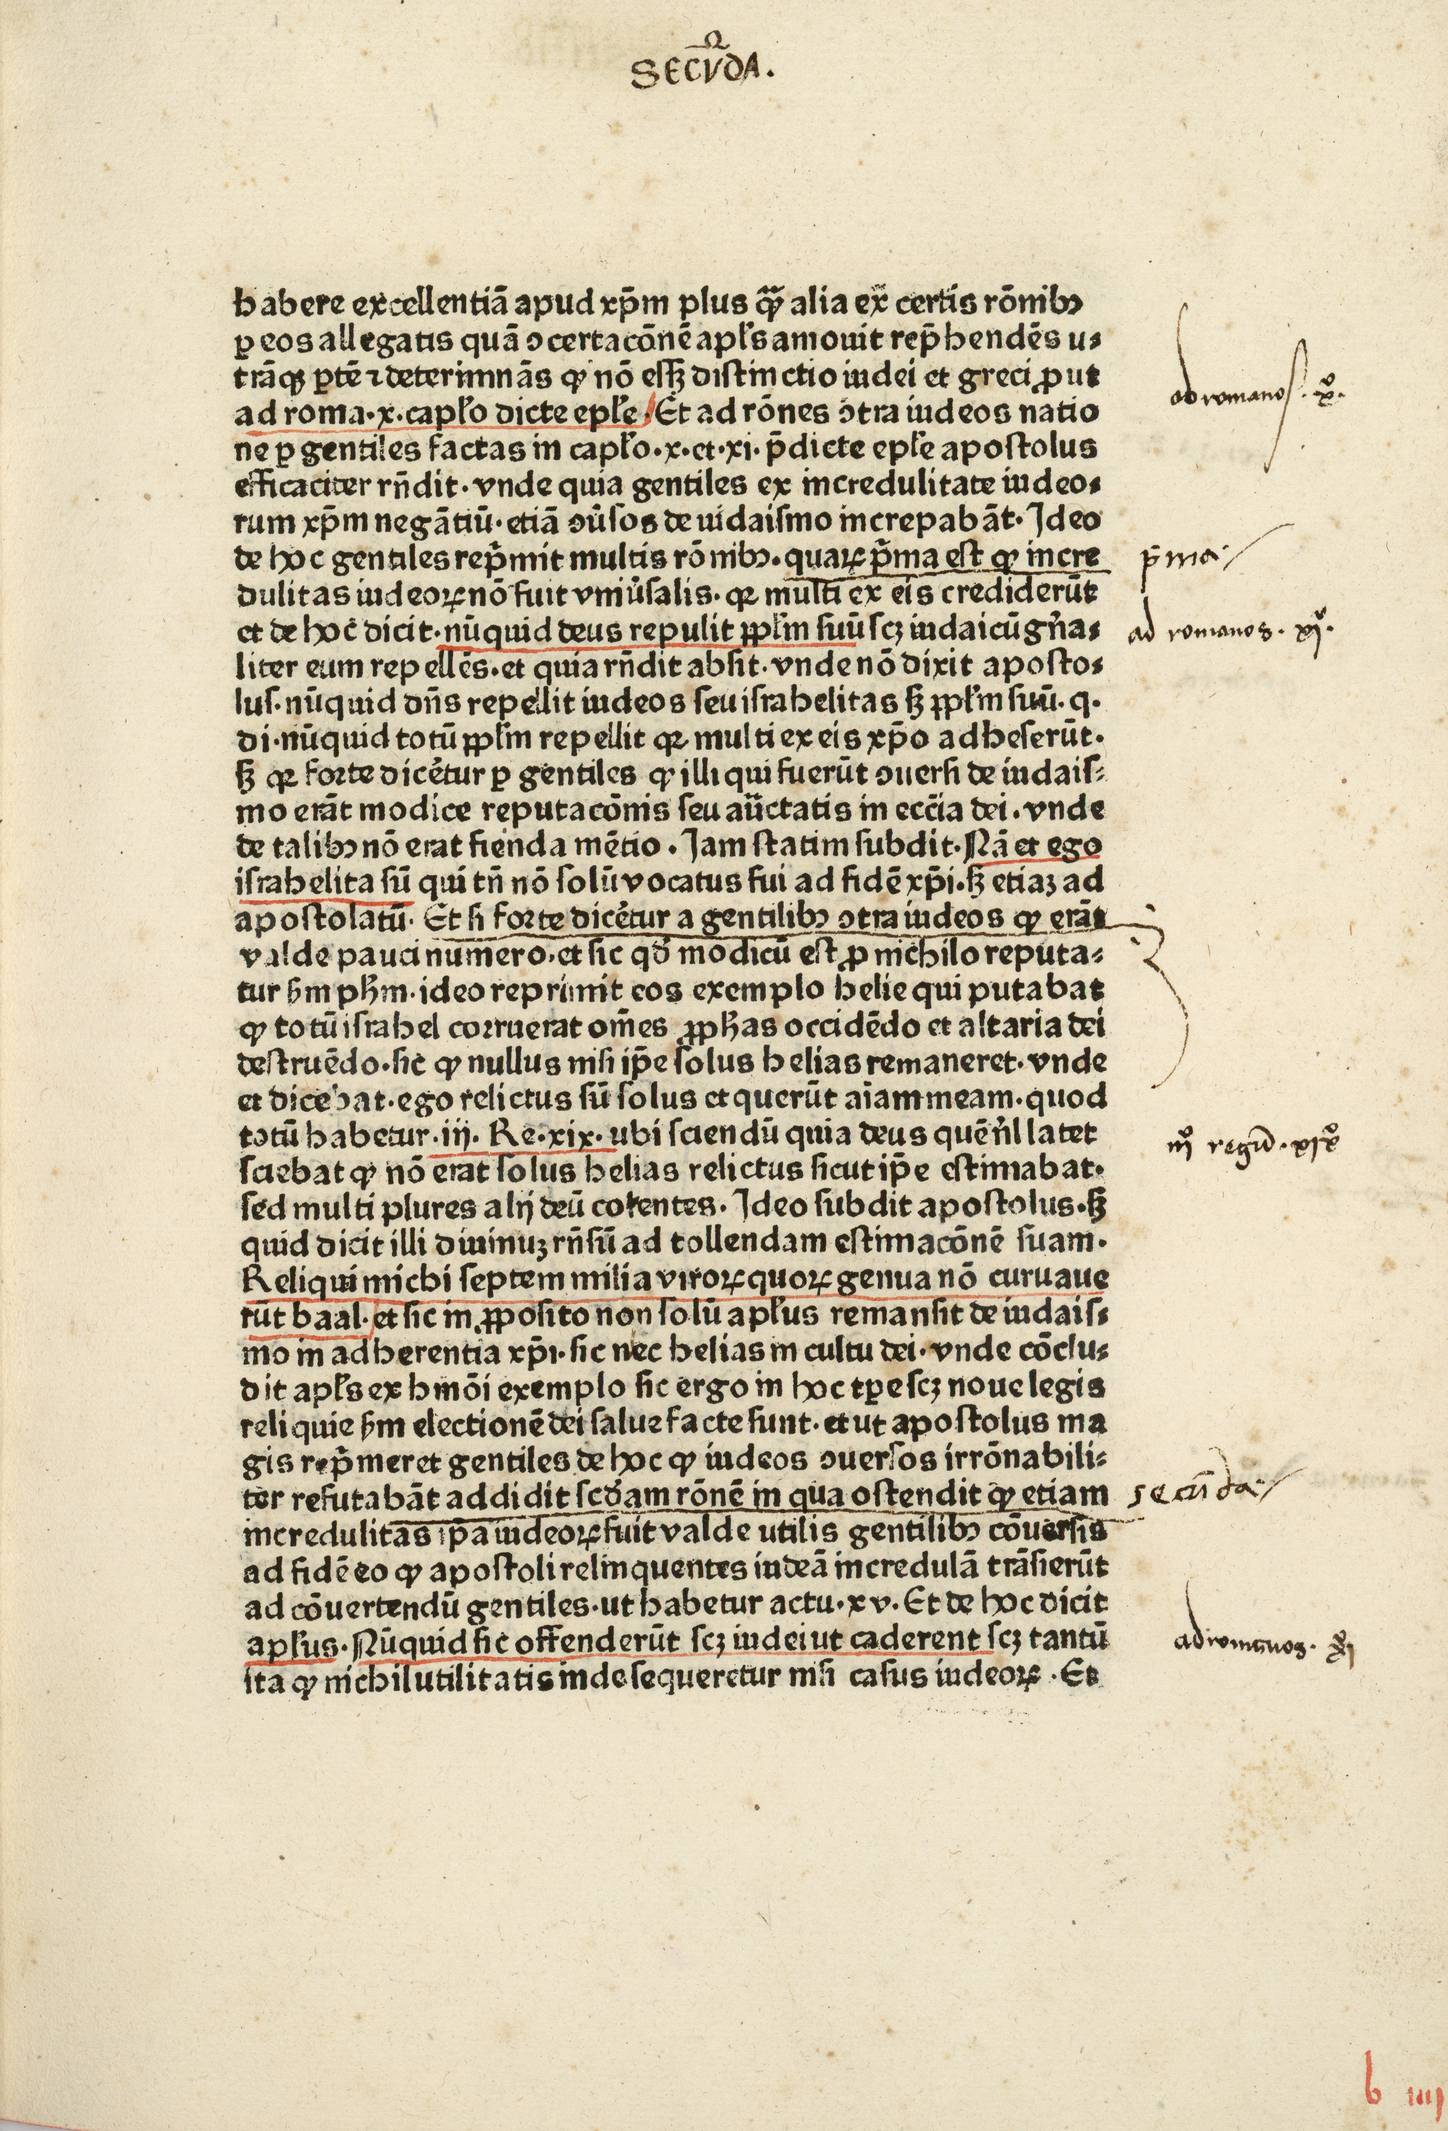 SECV̄DA.
habere excellentiā apud xp̄m plus qꝫ̄ alia ex certis rōnibꝰ
ꝑ eos allegatis quā ↄcertacōnē apl̓s amouit rep̄hendēs u⸗
trāqꝫ ꝑtē ⁊ determinās ꝙ nō essꝫ distinctio iudei et greci ꝓut
ad roma·x·capl̓o dicte epl̓e·Et ad rōnes ↄtra iudeos natio
ne ꝑ gentiles factas in capl̓o·x·et·xi· p̄dicte epl̓e apostolus
efficaciter rn̄dit·vnde quia gentiles ex incredulitate iudeo⸗
rum xp̄m negātiū·etiā ↄu̓sos de iudaismo increpabāt·Ideo
de hoc gentiles rep̄mit multis rōnibꝰ·quaꝝ p̄ma est ꝙ incre
dulitas iudeoꝝ nō fuit vniu̓salis·qꝛ multi ex eis crediderūt
et de hoc dicit·nūquid deus repulit ppl̓m suū scꝫ iudaicū gn̓a⸗
liter eum repellēs·et quia rn̄dit absit·vnde nō dixit aposto⸗
lus·nūquid dn̄s repellit iudeos seu israhelitas sꝫ ppl̓m suū·q·
di·nūquid totū ppl̓m repellit qꝛ multi ex eis xp̄o adheserūt·
sꝫ qꝛ forte dicēt̓ur ꝑ gentiles ꝙ illi qui fuerūt ↄuersi de iudais⸗
mo erāt modice reputacōnis seu auc̄tatis in ecc̄ia dei·vnde
de talibꝰ nō erat fienda mētio·Iam statim subdit·Nā et ego
israhelita sū qui tn̄ nō solū vocatus fui ad fidē xp̄i·sꝫ etiaꝫ ad
apostolatū· Et si forte dicēt̓ur a gentilibꝰ ↄtra iudeos ꝙ erāt
valde pauci numero·et sic qd̓ modicū est ꝓ nichilo reputa⸗
tur ẜm ph̄m·ideo reprimit eos exemplo helie qui putabat
ꝙ totū israhel corruerat om̄es ꝓph̄as occidēdo et altaria dei
destruēdo·sic ꝙ nullus nisi ip̄e solus helias remaneret·vnde
et dicebat·ego relictus sū solus et querūt aīam meam·quod
totū habetur·iij· Re·xix·ubi sciendū quia deus quē n̓l latet
sciebat ꝙ nō erat solus helias relictus sicut ip̄e estimabat·
sed multi plures alij deū colentes·Ideo subdit apostolus·sꝫ
quid dicit illi diuinuꝫ rn̄sū ad tollendam estimacōnē suam·
Reliqui michi septem milia viroꝝ quoꝝ genua nō curuaue
rūt baal·et sic in ꝓposito non solū apl̓us remansit de iudais⸗
mo in adherentia xp̄i·sic nec helias in cultu dei·vnde cōclu⸗
dit apl̓s ex hmōi exemplo sic ergo in hoc tꝑe scꝫ noue legis
reliquie ẜm electionē dei salue facte sunt·et ut apostolus ma
gis rep̄meret gentiles de hoc ꝙ iudeos ↄuersos irrōnabili⸗
ter refutabāt addidit scd̓am rōnē in qua ostendit ꝙ etiam
incredulitas ip̄a iudeoꝝ fuit valde utilis gentilibꝰ cōuersis
ad fidē eo ꝙ apostoli relinquentes iudeā incredulā trāsierūt
ad cōuertendū gentiles·ut habetur actu·xv·Et de hoc dicit
apl̓us·Nūquid sic offenderūt scꝫ iudei ut caderent scꝫ tantū
ita ꝙ nichil utilitatis inde sequeretur nisi casus iudeoꝝ·Et
ad romanos·xͦ·
p̄ma
ad romanos·xjͦ·
iijͦ regū·xixͦ
secūda
ad romanos·xjͦ
b iiij